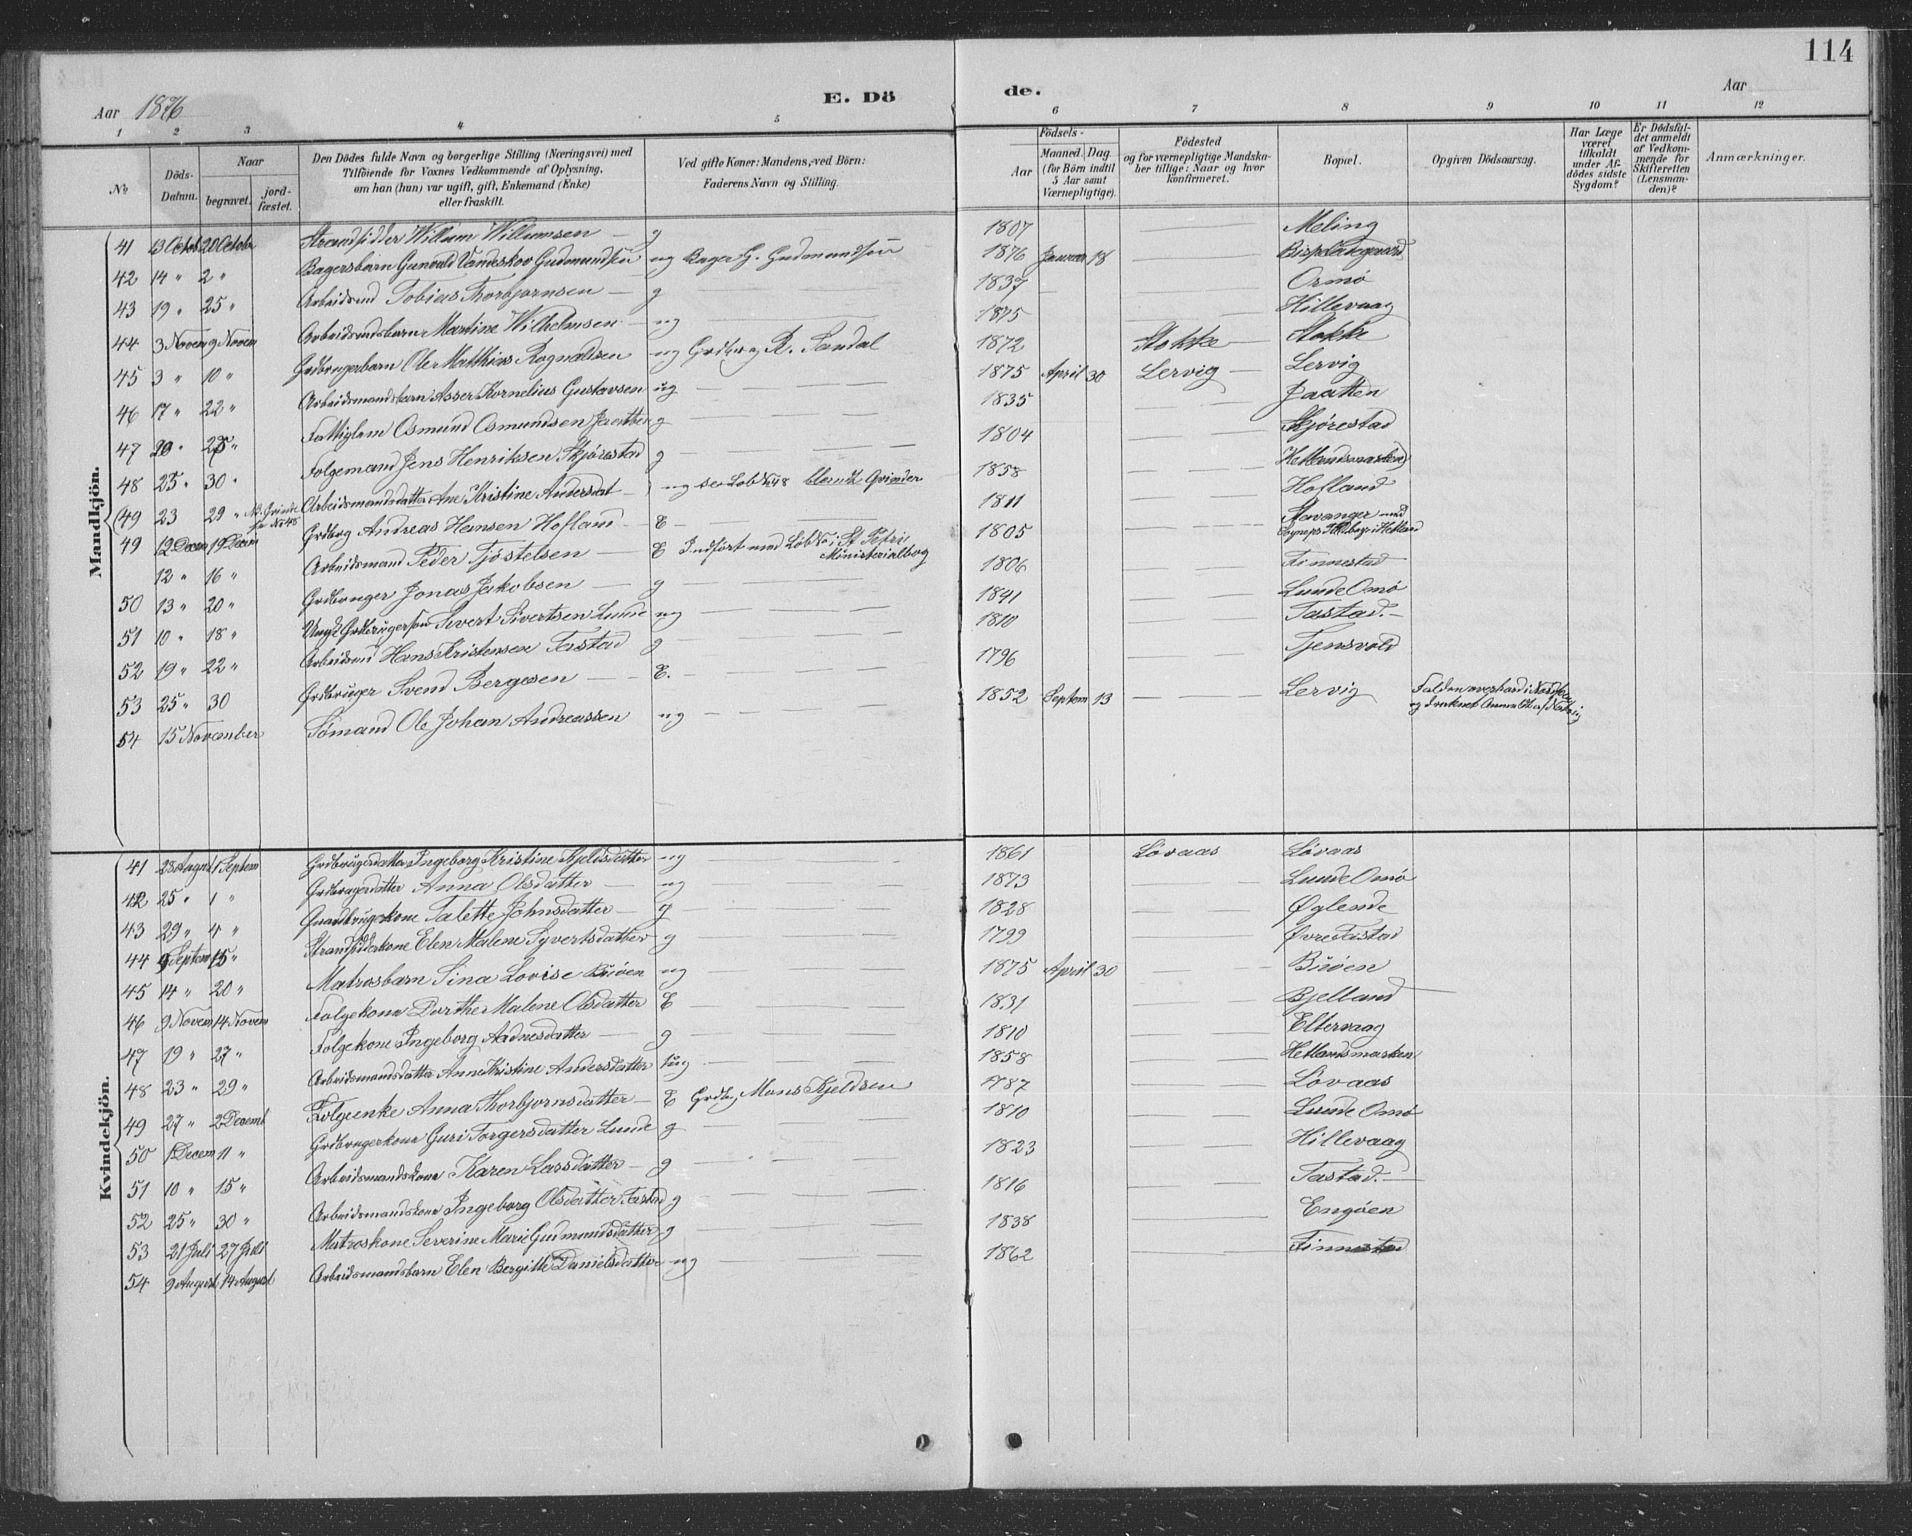 114
Aar 1876
E. Dö
de.
Aar
1 2 3 4 5 6 7 8 9 10 11 12
No
Döds-Datum.
Naar
begravet.
jord-fæstet.
Den Dödes fulde Navn og borgerlige Stilling (Næringsvei) med
Tilföiende for Voxnes Vedkommende af Oplysning,
om han (hun) var ugift, gift, Enkemand (Enke)
eller fraskilt.
Ved gifte Koner: Mandens, ved Börn:
Faderens Navn og Stilling.
Födsels-
Aar
Maaned. Dag.
(for Börn indtil
5 Aar samt
Værnepligtige).
Födested
og for værnepligtige Mandska-
ber tillige: Naar og hvor
konfirmeret.
Bopæl.
Opgiven Dödsaarsag.
Har Læge
været
tilkaldt
under Af-
dödes sidste
Sygdom?
Er Dödsfal-
det anmeldt
af Vedkom-
mende for
Skifteretten
(Lensman-
den)?
Anmærkninger.
Mandkjön.
41 13 Octob 20 Octobr Strandsidder Willum Willumsen g 1807 Meling
42 14 " 2 " Bagersbarn Gunvald Vandeskov Gudmundsen ug Bager G. Gudmundsen 1876 Januar 18 Bispeladegaard
43 19 " 25 " Arbeidsmd Tobias Thorbjornsen g 1837 Ormø
44 3 Novem 9 Novem Arbeidsmdsbarn Martine Wilhelmsen ug 1875 Hillevaag
45 3 " 10 " Grdbrugerbarn Ole Matthias Rognaldsen ug Grdbrug R. Sandal 1872 Stokke Stokke
46 17 " 22 " Arbeidsmandsbarn Asser Kornelius Gustavsen ug 1875 April 30 Lervig Lervig
47 20 " 25 " Fattiglem Osmund Osmundsen Jaatten g 1835 Jaatten
48 25 " 30 " Folgemand Jens Henriksen Skjørestad g 1804 Skjørestad
(49 23 29 " Arbeidsmandsdatter Ane Kristine Andersdat ug se Lob No 48 blandt Qvinder 1858 Hetlandsmarken)
49 12 Decem 19 Decem Grdbrg Andreas Hansen Hofland E 1811 Hofland
12 " 16 " Arbeidsmand Peder Tjöstelsen E Indfört med Løb No i St Petri Ministerialbog 1805 Stavanger med
50 13 " 20 " Grdbruger Jonas Jakobsen g 1806 Finnestad
51 10 " 18 " Ungk Grdbrugersøn Sivert Sivertsen Lunde ug 1841 Lunde Omø
52 19 " 22 " Arbeidsmd Hans Kristensen Tastad g 1810 Tastad.
53 25 " 30 Grdbruger Svend Bergesen E. 1796 Tjensvold
54 15 November Sömand Ole Johan Andreassen ug 1852 Septem 13 Lervig Falden overbord i
Kvindekjön.
41 28 August 1 Septem Grdbrugerdatter Ingeborg Kristine Kjeldsdatter ug 1861 Lövaas Lövaas
42 25 " 1 " Grdbrugerdatter Anna Olsdatter ug 1873 Lunde Omø
43 29 " 4 " Gaardbrugerkone Talette Johnsdatter g 1828 Øglende
44 9 Septem 15 " Strandsidderkone Elen Malene Syvertsdatter g 1799 Øvre Tastad
45 14 " 20 " Matrosbarn Sina Lovise Buøen ug 1875 April 30 Buøen
46 9 Novem 14 Novem Folgekone Dorthe Malene Olsdatter E 1831 Bjelland
47 19 " 27 " Folgekone Ingeborg Aadnesdatter g 1810 Eltervaag
48 23 " 29 " Arbeidsmandsdatter Anne Kristine Andersdatter ug 1858 Hetlandsmarken
49 27 " 2 Decemb Folgeenke Anna Thorbjornsdatter E Grdbrg Mons Kjeldsen 1787 Lövaas
50 1 Decem 11 " Grdbrugerkone Guri Torgersdatter Lunde g 1810 Lunde Omø
51 10 " 15 " Arbeidsmandskone Karen Larsdatter g 1823 Hillevaag
52 25 " 30 " Arbeidsmandskone Ingeborg Olsdatter Tastad g 1816 Tastad.
53 21 Juli 27 Juli Matroskone Severine Marie Gudmundsdatter g 1838 Engöen
54 9 August 14 August Arbeidsmandsbarn Elen Bergitte Danielsdatter ug 1862 Finnestad